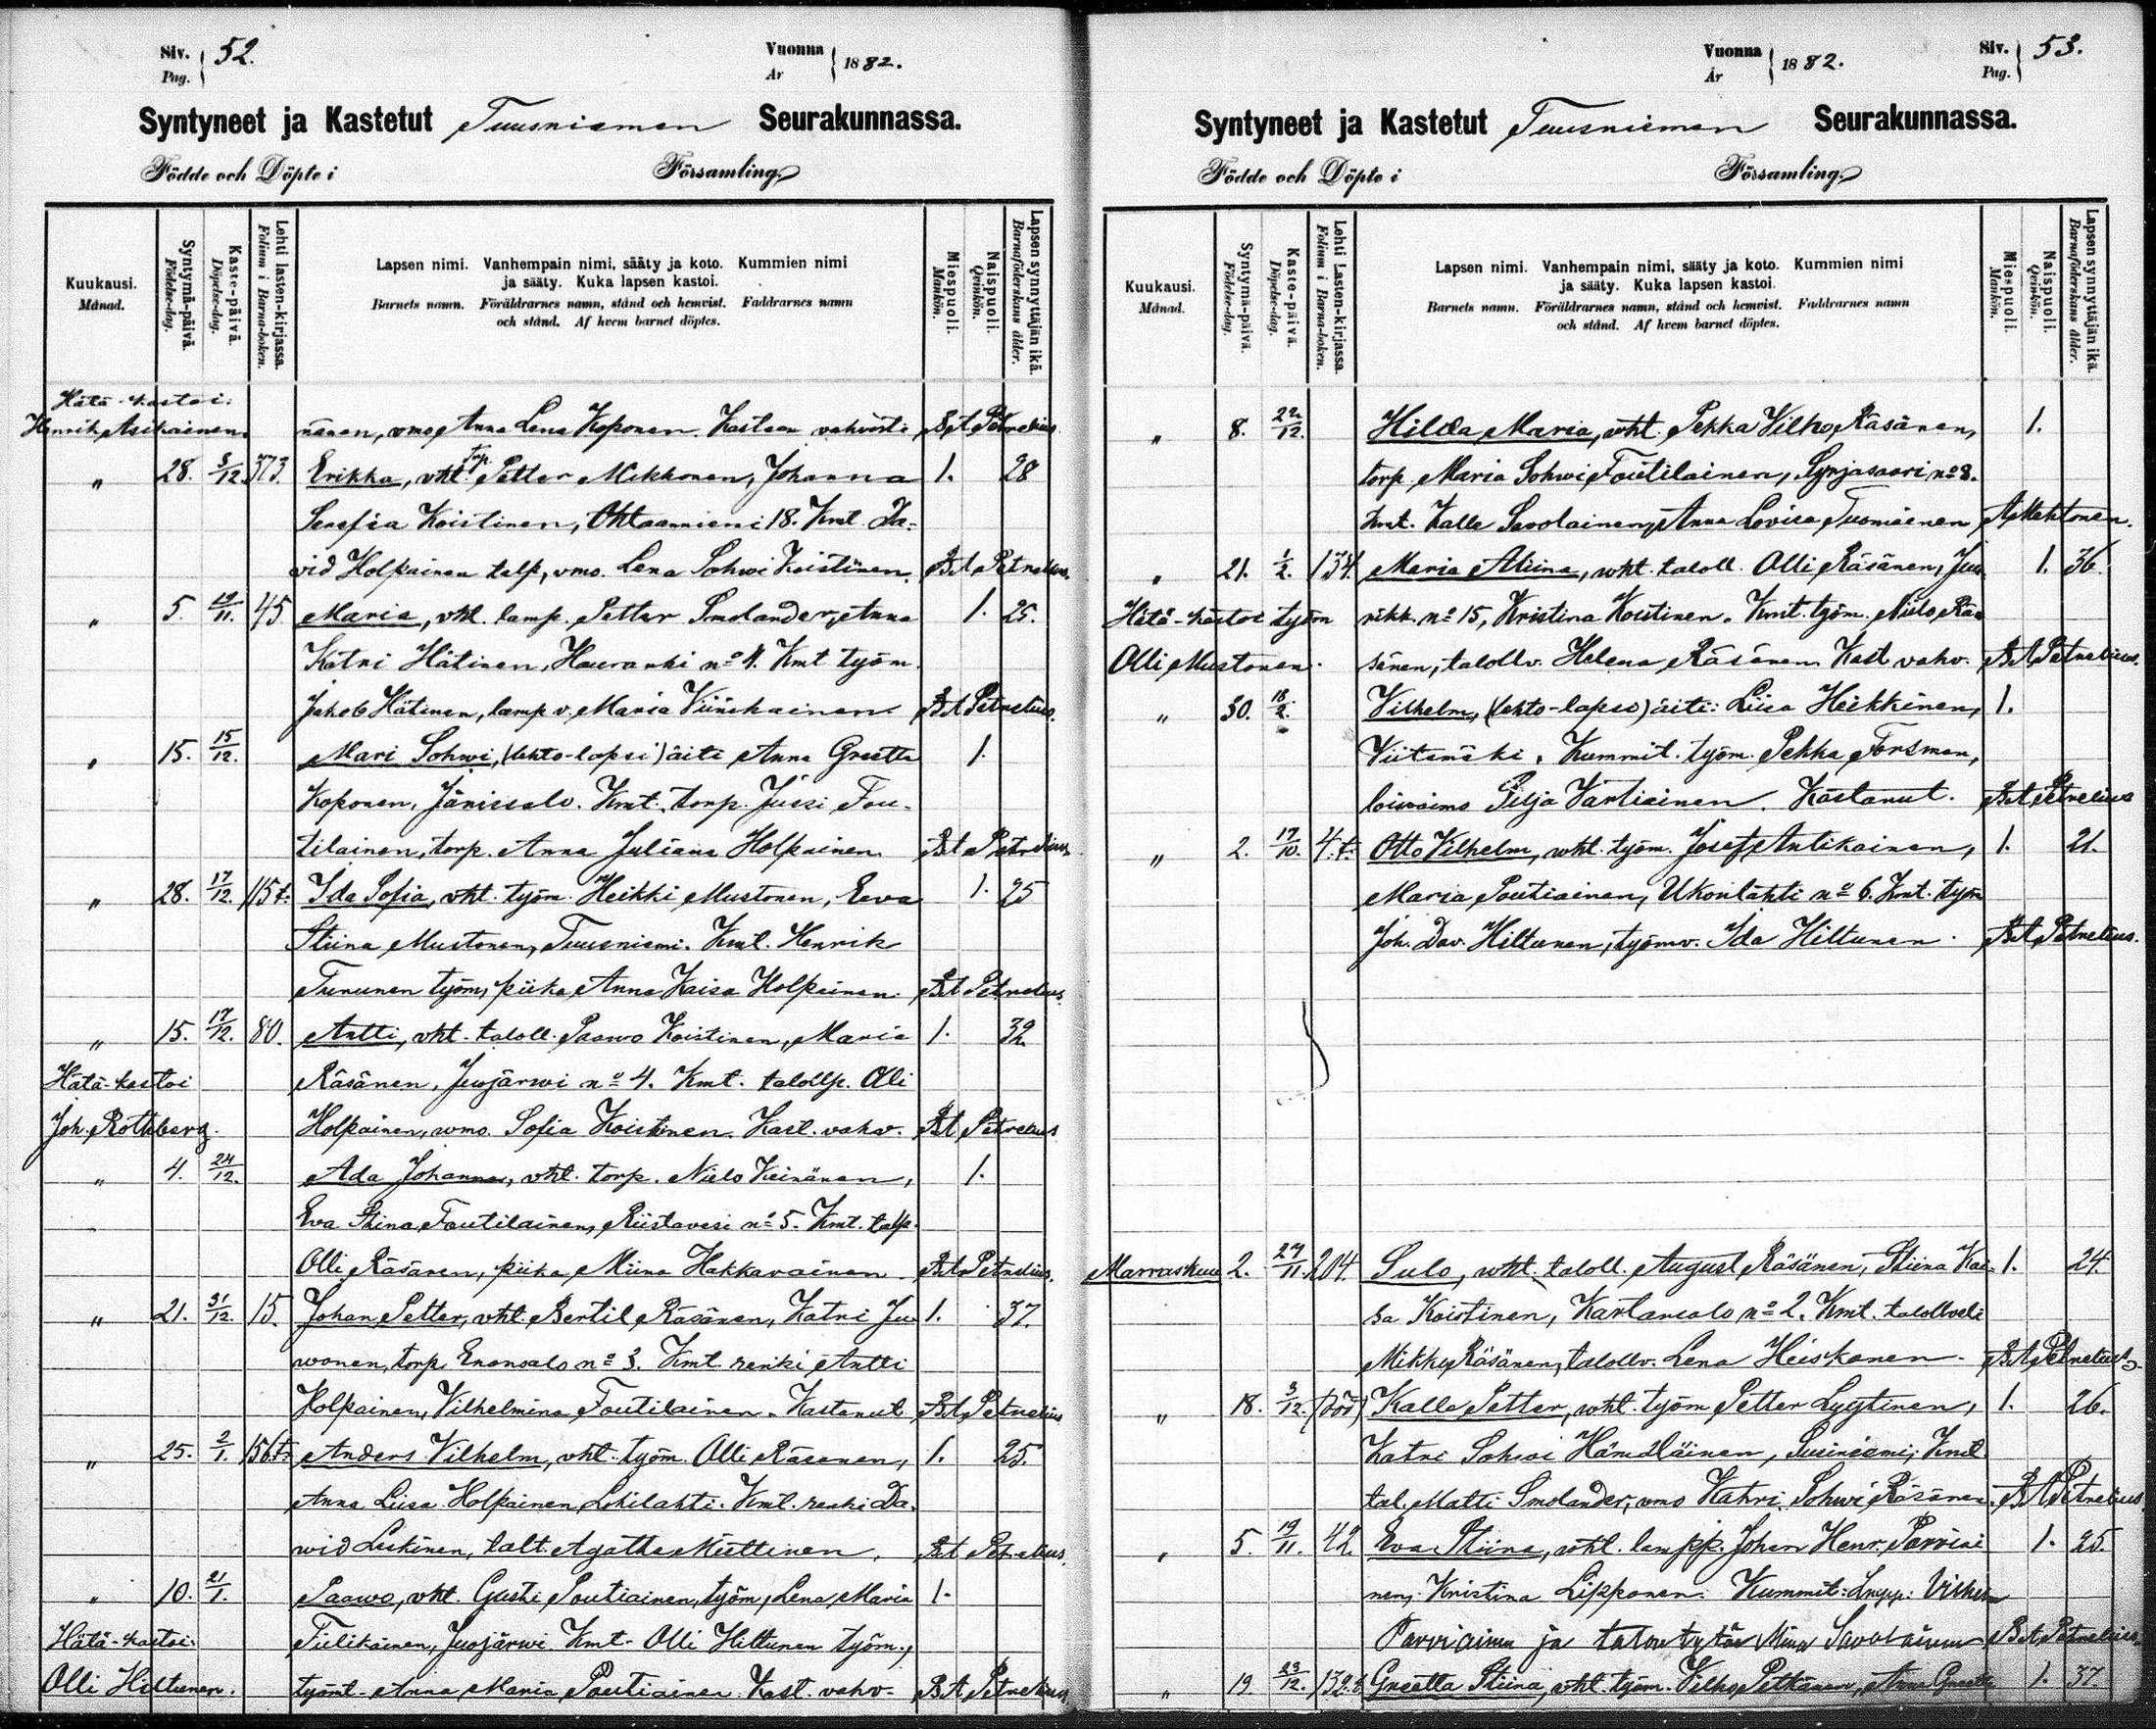 Siv. 52.
Pag.
Vuonna 1882.
År
Syntyneet ja Kastetut Tuusniemen Seurakunnassa.
Födde och Döpte i Församling.
Kuukausi.
Månad.
Syntymä-päivä.
Födelse-dag.
Kaste-päivä.
Döpelse-dag.
Lehti lasten-kirjassa.
Folium i Barna-boken.
Lapsen nimi. Vanhempain nimi, sääty ja koto. Kummien nimi
ja sääty. Kuka lapsen kastoi.
Barnets namn. Föräldrarnes namn, stånd och hemvist. Faddrarnes namn
och stånd. Af hvem barnet döptes.
Miespuoli.
Mankön.
Naispuoli.
Qvinkön.
Lapsen synnyttäjän ikä.
Barnaföderskans ålder.
Hätä-kastoi:
Henrik Asikainen. nänen, vmo Anna Lena Koponen. Kasteen vahvisti B A Petrelius.
" 28. 3/12. 373. Erikka, vht. Trp. Petter Mikkonen, Johanna 1. 28
Serafia Koistinen, Ohtaanniemi 18. Kmt. Da-
vid Holpainen talp, vmo. Lena Sohwi Koistinen. B A Petrelius.
" 5. 19/11. 45. Maria, vht. lamp. Petter Smolander, Anna 1. 25.
Katri Hätinen, Hauranki no 4. Kmt työm.
Jakob Hätinen, lamp v. Maria Viinikainen B A Petrelius.
" 15. 15/12. Mari Sohwi, (lehto-lapsi) äiti Anna Greetta 1.
Koponen, Jänissalo. Kmt. torp. Jussi Tou-
tilainen, torp. Anna Juliana Holpainen B A Petrelius
" 28. 17/12. 115 t. Ida Sofia, vht. työm. Heikki Mustonen, Eeva 1. 25
Stiina Mustonen, Tuusniemi. Kmt. Henrik
Turunen työm, piika Anna Kaisa Holpainen. B A Petrelius.
" 15. 17/12. 80. Antti, vht. taloll. Paavo Koistinen, Maria 1. 32
Hätä-kastoi Räsänen, Juojärwi no 4. Kmt. talollp. Olli
Joh. Rothberg. Holpainen, vmo. Sofia Koistinen. Kast. vahv. B A Petrelius
" 4. 24/12. Ada Johanna, vht. torp. Niilo Keinänen, 1.
Eva Stina Toutilainen, Riistavesi no 5. Kmt. talp.
Olli Räsänen, piika Miina Hakkarainen. B A Petrelius.
" 21. 31/12. 15. Johan Petter, vht. Bertil Räsänen, Katri Ju- 1. 37.
wonen, torp Enonsalo no 3. Kmt renki Antti
Holpainen, Vilhelmina Toutilainen. Kastanut B A Petrelius
" 25. 2/1. 156. t. Anders Vilhelm, vht. työm. Olli Räsänen, 1. 25.
Anna Liisa Holpainen, Lohilahti. Kmt. renki Da-
wid Leskinen, talt. Agatha Miettinen. B A Petrelius.
" 10. 21/1. Paavo, vht. Gusti Poutiainen, työm, Lena Maria 1.
Hätä-kastoi: Tiilikainen, Juojärwi. Kmt. Olli Hiltunen työm.,
Olli Hiltunen. työmt. Anna Maria Poutiainen. Kast. vahv. B A Petrelius.
Vuonna 1882.
År
Siv. 53.
Pag.
Syntyneet ja Kastetut Tuusniemen Seurakunnassa.
Födde och Döpte i Församling.
Kuukausi.
Månad.
Syntymä-päivä.
Födelse-dag.
Kaste-päivä.
Döpelse-dag.
Lehti Lasten-kirjassa.
Folium i Barna-boken.
Lapsen nimi. Vanhempain nimi, sääty ja koto. Kummien nimi
ja sääty. Kuka lapsen kastoi.
Barnets namn. Föräldrarnes namn, stånd och hemvist. Faddrarnes namn
och stånd. Af hvem barnet döptes.
Miespuoli.
Mankön.
Naispuoli.
Qvinkön.
Lapsen synnyttäjän ikä.
Barnaföderskans ålder.
" 8. 22/12. Hilda Maria, vht. Pekka Vilho Räsänen, 1.
torp, Maria Sohwi Toutilainen, Syrjasaari no 8.
Kmt. Kalle Savolainen, Anna Lovisa Tuomainen A Mahtonen.
" 21. 1/2. 134. Maria Aliina, vht. taloll. Olli Räsänen, Juu- 1. 36.
Hätä-kastoi työm rikk. no 15, Kristina Koistinen. Kmt. työm. Niilo Rä-
Olli Mustonen. sänen, talollv. Helena Räsänen Kast vahv. B A Petrelius.
" 30. 18/2. Vilhelm, (lehto-lapsi) äiti: Liisa Heikkinen, 1.
Viitamäki. Kummit. työm. Pekka Forsman,
loisvaimo Silja Vartiainen. Kastanut. B A Petrelius
" 2. 17/10. 4. t. Otto Vilhelm, vht. työm. Josef Antikainen, 1. 21.
Maria Poutiainen, Ukonlahti no 6. Kmt. työm
Joh. Dav. Hiltunen, työmv. Ida Hiltunen. B A Petrelius.
Marraskuu 2. 27/11. 204. Sulo, vht. taloll. August Räsänen, Stiina Kai- 1. 24.
sa Koistinen, Kartansalo no 2. Kmt. talollveli
Mikko Räsänen, talollv. Lena Heiskanen. B A Petrelius
" 18. 3/12. Kalle Petter, vht. työm Petter Lyytinen, 1. 26.
Katri Sohwi Hämäläinen, Susiniemi, Kmt
tal. Matti Smolander, vmo Katri Sohwi Räsänen. B A Petrelius.
" 5. 19/11. 42. Eva Stiina, vht. lampp. Johan Henr. Parviai 1. 25.
nen, Kristina Lipponen. Kummit: Lmpp: Vilhem
Parviainen ja talontytär Miina Savolainen B A Petrelius.
" 19. 23/12. 132. t. Greetta Stiina, vht. työm. Vilho Petkänen, Anna Greetta 1. 37.